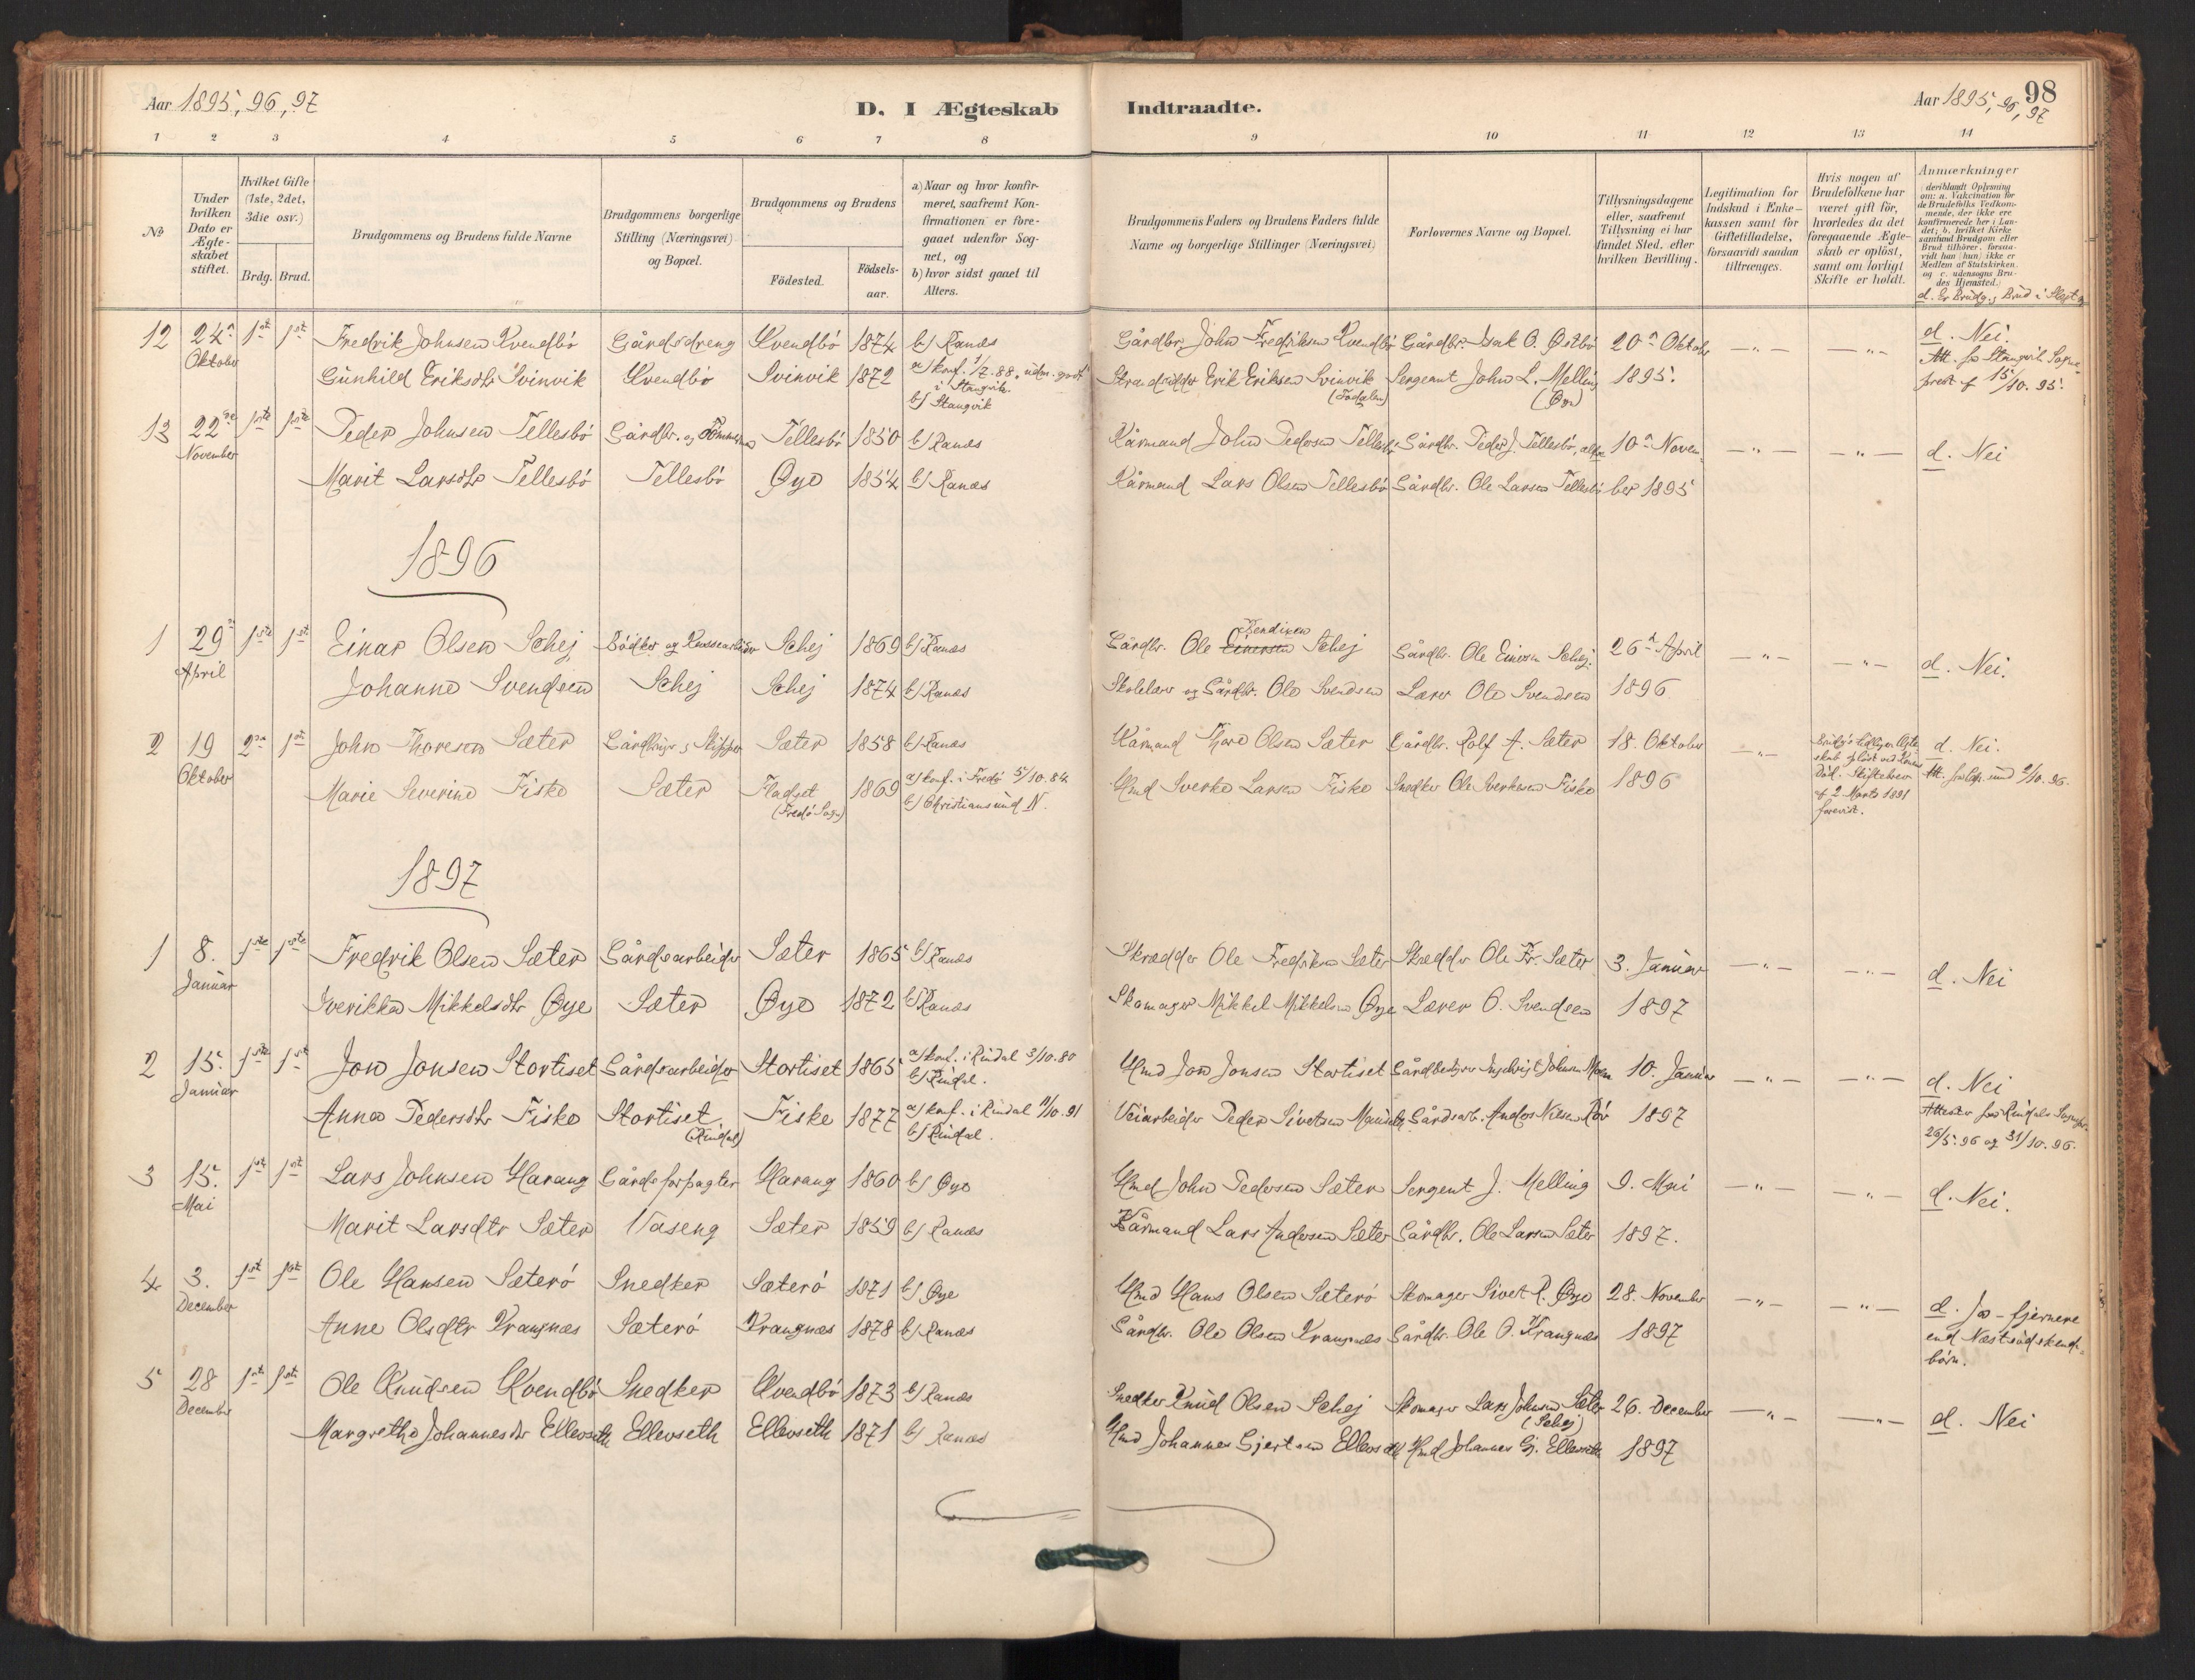 Aar 1895, 96, 97
D. I Ægteskab Indtraadte.
Aar 1895, 96, 97
98
1 2 3 4 5 6 7 8 9 10 11 12 13 14
No
Under hvilken Dato er Ægteskabet stiftet.
Hvilket Gifte (1ste, 2det, 3die osv.)
Brdg. Brud.
Brudgommens og Brudens fulde Navne
Brudgommens borgerlige Stilling (Næringsvei) og Bopæl.
Brudgommens og Brudens
Fødested.
Fødselsaar.
a) Naar og hvor konfirmeret, saafremt Konfirmationen er foregaaet udenfor Sognet, og
b) hvor sidst gaaet til Alters.
Brudgommens Faders og Brudens Faders fulde Navne og borgerlige Stillinger (Næringsvei)
Forlovernes Navne og Bopæl.
Tillysningsdagene eller, saafremt Tillysning ei har fundet Sted, efter hvilken Bevilling.
Legitimation for Indskud i Enkekassen samt for Giftetilladelse, forsaavidt saadan tiltrænges.
Hvis nogen af Brudefolkene har været gift før, hvorledes da det foregaaende Ægteskab er opløst, samt om lovligt Skifte er holdt.
Anmærkninger (deriblandt Oplysning om: a. Vakcination for de Brudefolks Vedkommende, der ikke ere konfirmerede her i Landet; b. hvilket Kirkesamfund Brudgom eller Brud tilhører, forsaavidt han (hun) ikke er Medlem af Statskirken, og c. udensogns Brudes Hjemsted.)
12 24 Oktober 1st 1st Fredrik Johnsen Kvendbø Gårdsdreng Kvendbø 1874 b) Ranæs Gårdbr. John Fredriksen Kvendbø Gårdbr. Isak O. Østbø 20 Oktober d. Nei.
Gunhild Eriksdtr Svinvik Kvendbø Svinvik 1872 a) konf. 1/7. 88 i Stangvik. b) Stangvik Erik Eriksen Svinvik (Todalen) Sergeant John L. Melling (Øye) 1895. Att. fra Stangvik Sogneprest 15/10. 95.
13 22 November 1ste 1ste Peder Johnsen Tellesbø Gårdbr. og Tømmermand Tellesbø 1850 b) Ranæs Kårmand John Pedersen Tellesbø Gårdbr. Peder J. Tellesbø 10 Novem- d. Nei
Marit Larsdtr Tellesbø Tellesbø Øye 1854 b) Ranæs Kårmand Lars Olsen Tellesbø Gårdbr. Ole Larsen Tellesbø ber 1895
1896
1 29 April 1ste 1st Einar Olsen Schej Bødker og Schej 1869 b) Ranæs Gårdbr. Ole Einersen Schej Gårdbr. Ole Einersen Schej. 26 April d. Nei.
Johanne Svendsen Schej Schej 1874 b) Ranæs Skolelærer og Gårdbr. Ole Svendsen Lærer Ole Svendsen 1896
2 19 Oktober 2den 1st John Thoresen Sæter Gårdbruger og Skipper Sæter 1858 b) Ranæs Kårmand Thore Olsen Sæter Gårdbr. Rolf A. Sæter 18. Oktober d. Nei.
Marie Severine Fiske Sæter Fladset (Fredø Sogn) 1869 a) konf. i Fredø 5/10. 84 b) Christiansund N. Hmd Sverke Larsen Fiske Snedker Ole Sverkesen Fiske 1896
Brudg's tidligere Ægteskab opløst ved Konens Død. Skiftebrev af 2 Marts 1891 forevist.
1897
1 8. Januar 1ste 1ste Fredrik Olsen Sæter Gårdsarbeider Sæter 1865 b) Ranæs Skrædder Ole Fredriksen Sæter Skrædder Ole Fr. Sæter 3. Januar d. Nei
Iverikka Mikkelsdtr Øye Sæter Øye 1872 b) Ranæs Skomager Mikkel Mikkelsen Øye Lærer O. Svendsen 1897
2 15. Januar 1ste 1st Jon Jonsen Stortiset Gårdsarbeider Stortiset 1865 a) konf. i Rindal 3/10. 80 b) Rindal. Hmd Jon Jonsen Stortiset Gårdbestyrer Ingebrigt Johnsen Moen 10. Januar d. Nei
Anna Pedersdtr Fiske Stortiset (Rindal) Fiske 1877 a) konf. i Rindal 11/10. 91 b) Rindal. Veiarbeider Peder Sivertsen Gårdsarb. Anders Nilsen Røv 1897 Attester fra Rindals Sognepr. 26/5. 96 og 31/10. 96.
3 15. Mai 1st 1st Lars Johnsen Harang Gårdsforpagter Harang 1860 b) Øye Hmd John Pedersen Sæter Sergent J. Melling 9. Mai d. Nei.
Marit Larsdtr Sæter Vaseng Sæter 1859 b) Ranæs Kårmand Lars Andersen Sæter Gårdbr. Ole Larsen Sæter 1897.
4 3. December 1st 1st Ole Hansen Sæterø Snedker Sæterø 1871 b) Øye Hmd Hans Olsen Sæterø Skomager Sivert P. Øye 28. November d. Ja - fjernere end Næstsødskendebørn.
Anne Olsdtr Krangnæs Sæterø Krangnæs 1878 b) Ranæs Gårdbr. Ole Olsen Krangnæs Gårdbr. Ole O. Krangnæs 1897
5 28 December 1st 1ste Ole Knudsen Kvendbø Snedker Kvendbø 1873 b) Ranæs Snedker Knud Olsen Schej Skomager Lars Johnsen Sæter (Schej) 26. December d. Nei
Margrethe Johannesdtr Ellevseth Ellevseth Ellevseth 1871 b) Ranæs Hmd Johannes Gjertsen Ellevseth Hmd Johannes Gj. Ellevseth 1897